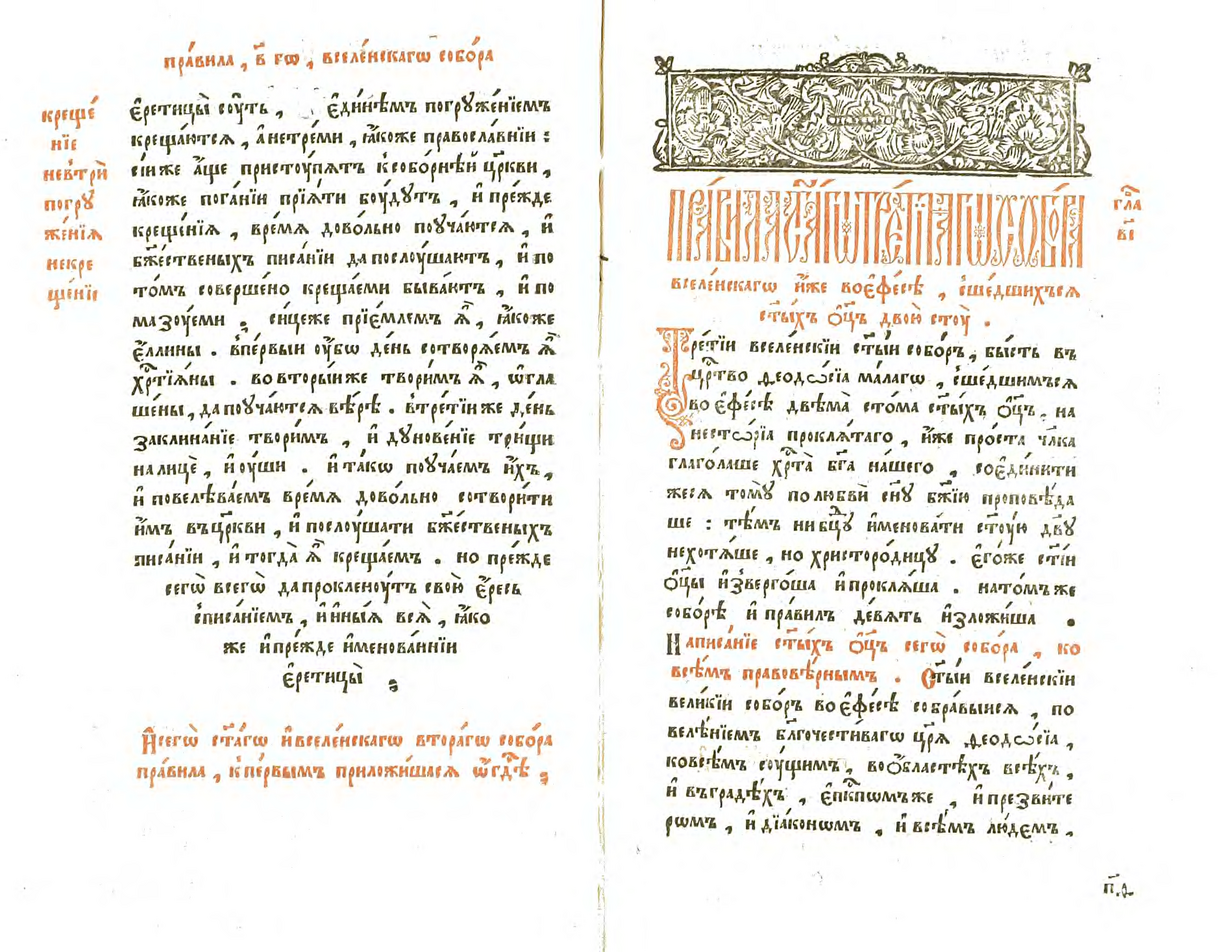 пра́вила , в҃ гѡ , вселе́нскагѡ собо́ра
креще́
нїе
невтрѝ
погрꙋ
же́нїѧ
некре
ще́нїе
є҆ретицы̀ сꙋ́ть , є҆ди́нѣмъ погрꙋже́нїемъ
креща́ютсѧ , а҆нетре́ми , ꙗ҆́коже правосла́внїи :
сїиже а҆́ще пристꙋ́пѧтъ ксобо́рнѣй цр҃кви ,
ꙗ҆́коже пога́нїи прїѧ́ти бꙋ́дꙋтъ , и҆пре́жде
креще́нїѧ , вре́мѧ дово́льно поꙋча́ютсѧ , и҆
бж҃е́ственыхъ писа́нїи дапослꙋ́шаютъ , и҆по
то́мъ соверше́но креща́еми быва́ютъ , и҆по
мазꙋ́еми ; си́цеже прїе́млемъ ѧ҆̀ , ꙗ҆́коже
є҆́ллины . впе́рвыи ᲂу҆́бѡ де́нь сотворѧ́емъ ѧ҆̀
хрⷭ҇тїѧ́ны . вовторы́иже твори́мъ ѧ҆̀ , ѡ҆гла
ше́ны , дапоꙋча́ютсѧ вѣ́рѣ . втре́тїиже де́нь
заклина́нїе твори́мъ , и҆ дꙋнове́нїе три́щи
налицѐ , и҆ᲂу҆́ши . и҆та́кѡ поꙋча́емъ и҆̀хъ ,
и҆ повелѣва́емъ вре́мѧ дово́льно сотвори́ти
и҆̀мъ въцр҃кви , и҆послꙋ́шати бж҃е́ственыхъ
писа́нїи , и҆тогда̀ ѧ҆̀ креща́емъ . но пре́жде
сегѡ̀ всегѡ̀ дапроклену́тъ свою̀ є҆́ресь
списа́нїемъ , и҆и҆ны́ѧ всѧ̀ , ꙗ҆́ко
же и҆пре́жде и҆менова́ннїи
є҆ретицы̀ ;
И҆сегѡ̀ ст҃а́гѡ и҆вселе́нскагѡ втора́гѡ собо́ра
пра́вила , кпе́рвымъ приложи́шасѧ ѿгдѣ̀ ;
пра́вила ст҃а́гѡ тре́тїѧгѡ собо́ра
гла̀
в҃і
вселе́нскагѡ и҆́же воє҆фе́сѣ , сше́дшихъсѧ
ст҃ы́хъ ѻ҆ц҃ъ двою̀ стꙋ̀ .
Тре́тїи вселе́нскїи ст҃ы́и собо́ръ , бы́сть въ
црⷭ҇тво ѳеодѡ́сїа ма́лагѡ , сше́дшимъсѧ
во є҆фе́сѣ двѣма̀ сто́ма ст҃ы́хъ ѻ҆ц҃ъ , на
несто́рїа проклѧ́таго , и҆́же про́ста чл҃ка
глаго́лаше хрⷭ҇та̀ бг҃а на́шего , соедини́ти
жесѧ томꙋ̀ полюбвѝ сн҃ꙋ бж҃їю проповѣ́да
ше : тѣ́мъ нибц҃ꙋ и҆менова́ти ст҃ꙋ́ю дв҃ꙋ
нехотѧ́ше , но христоро́дицꙋ . є҆го́же ст҃і́и
ѻ҆ц҃ы и҆зверго́ша и҆проклѧ́ша . нато́мъже
собо́рѣ и҆ пра́вилъ де́вѧть и҆зложи́ша .
Написа́нїе ст҃ы́хъ ѻ҆ц҃ъ сегѡ̀ собо́ра , ко
всѣ́мъ правовѣ́рнымъ . Ст҃ы́и вселе́нскїи
вели́кїи собо́ръ воє҆фе́сѣ собра́выисѧ , по
велѣ́нїемъ бл҃гочести́вагѡ цр҃ѧ̀ ѳеодѡ́сїа ,
ковсѣ́мъ сꙋ́щимъ , воѻ҆бластѣ́хъ всѣ́хъ ,
и҆ въгра́дѣхъ , є҆пⷭ҇кпѡмъже , и҆презви́те
рѡмъ , и҆дїа́конѡмъ , и҆всѣ́мъ лю́демъ ,
п҃д